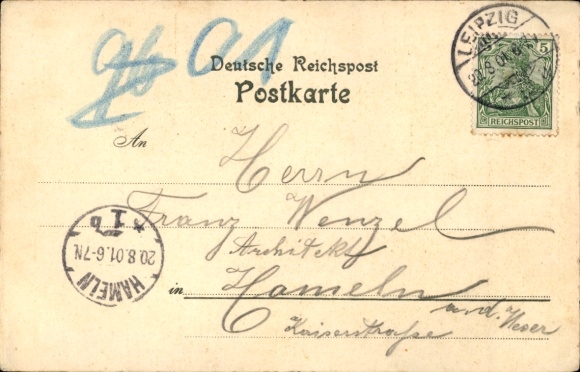 91
Deutsche Reichspost
Postkarte
LEIPZIG
5
REICHSPOST
An
Herrn
Franz Wenzel
Architekt
in Hameln
a. d. Weser
Kaiserstraße
HAMELN
20.8.01.6-7N.
* 1b